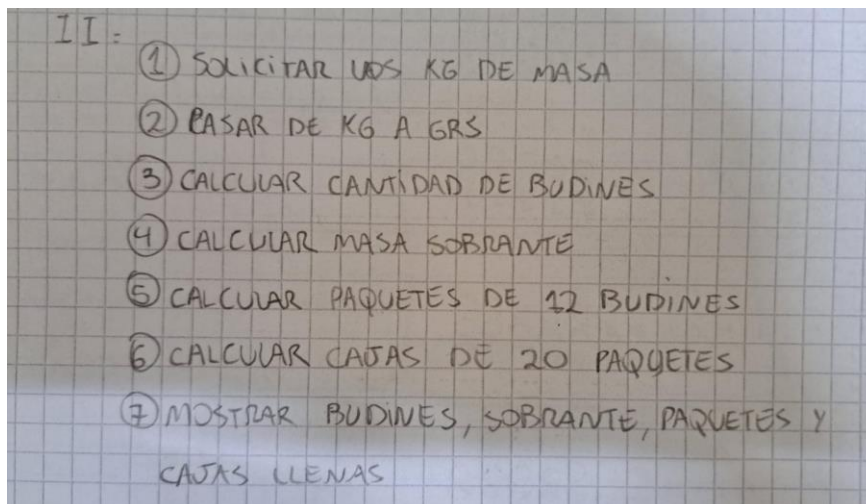 II:
① SOLICITAR LOS KG DE MASA
② PASAR DE KG A GRS
③ CALCULAR CANTIDAD DE BUDINES
④ CALCULAR MASA SOBRANTE
⑤ CALCULAR PAQUETES DE 12 BUDINES
⑥ CALCULAR CAJAS DE 20 PAQUETES
⑦ MOSTRAR BUDINES, SOBRANTE, PAQUETES Y
CAJAS LLENAS